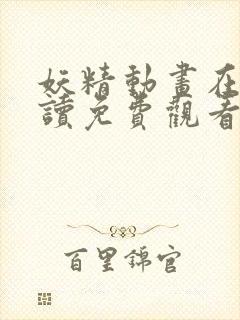 妖精動畫在
讀免費觀看
百里錦官